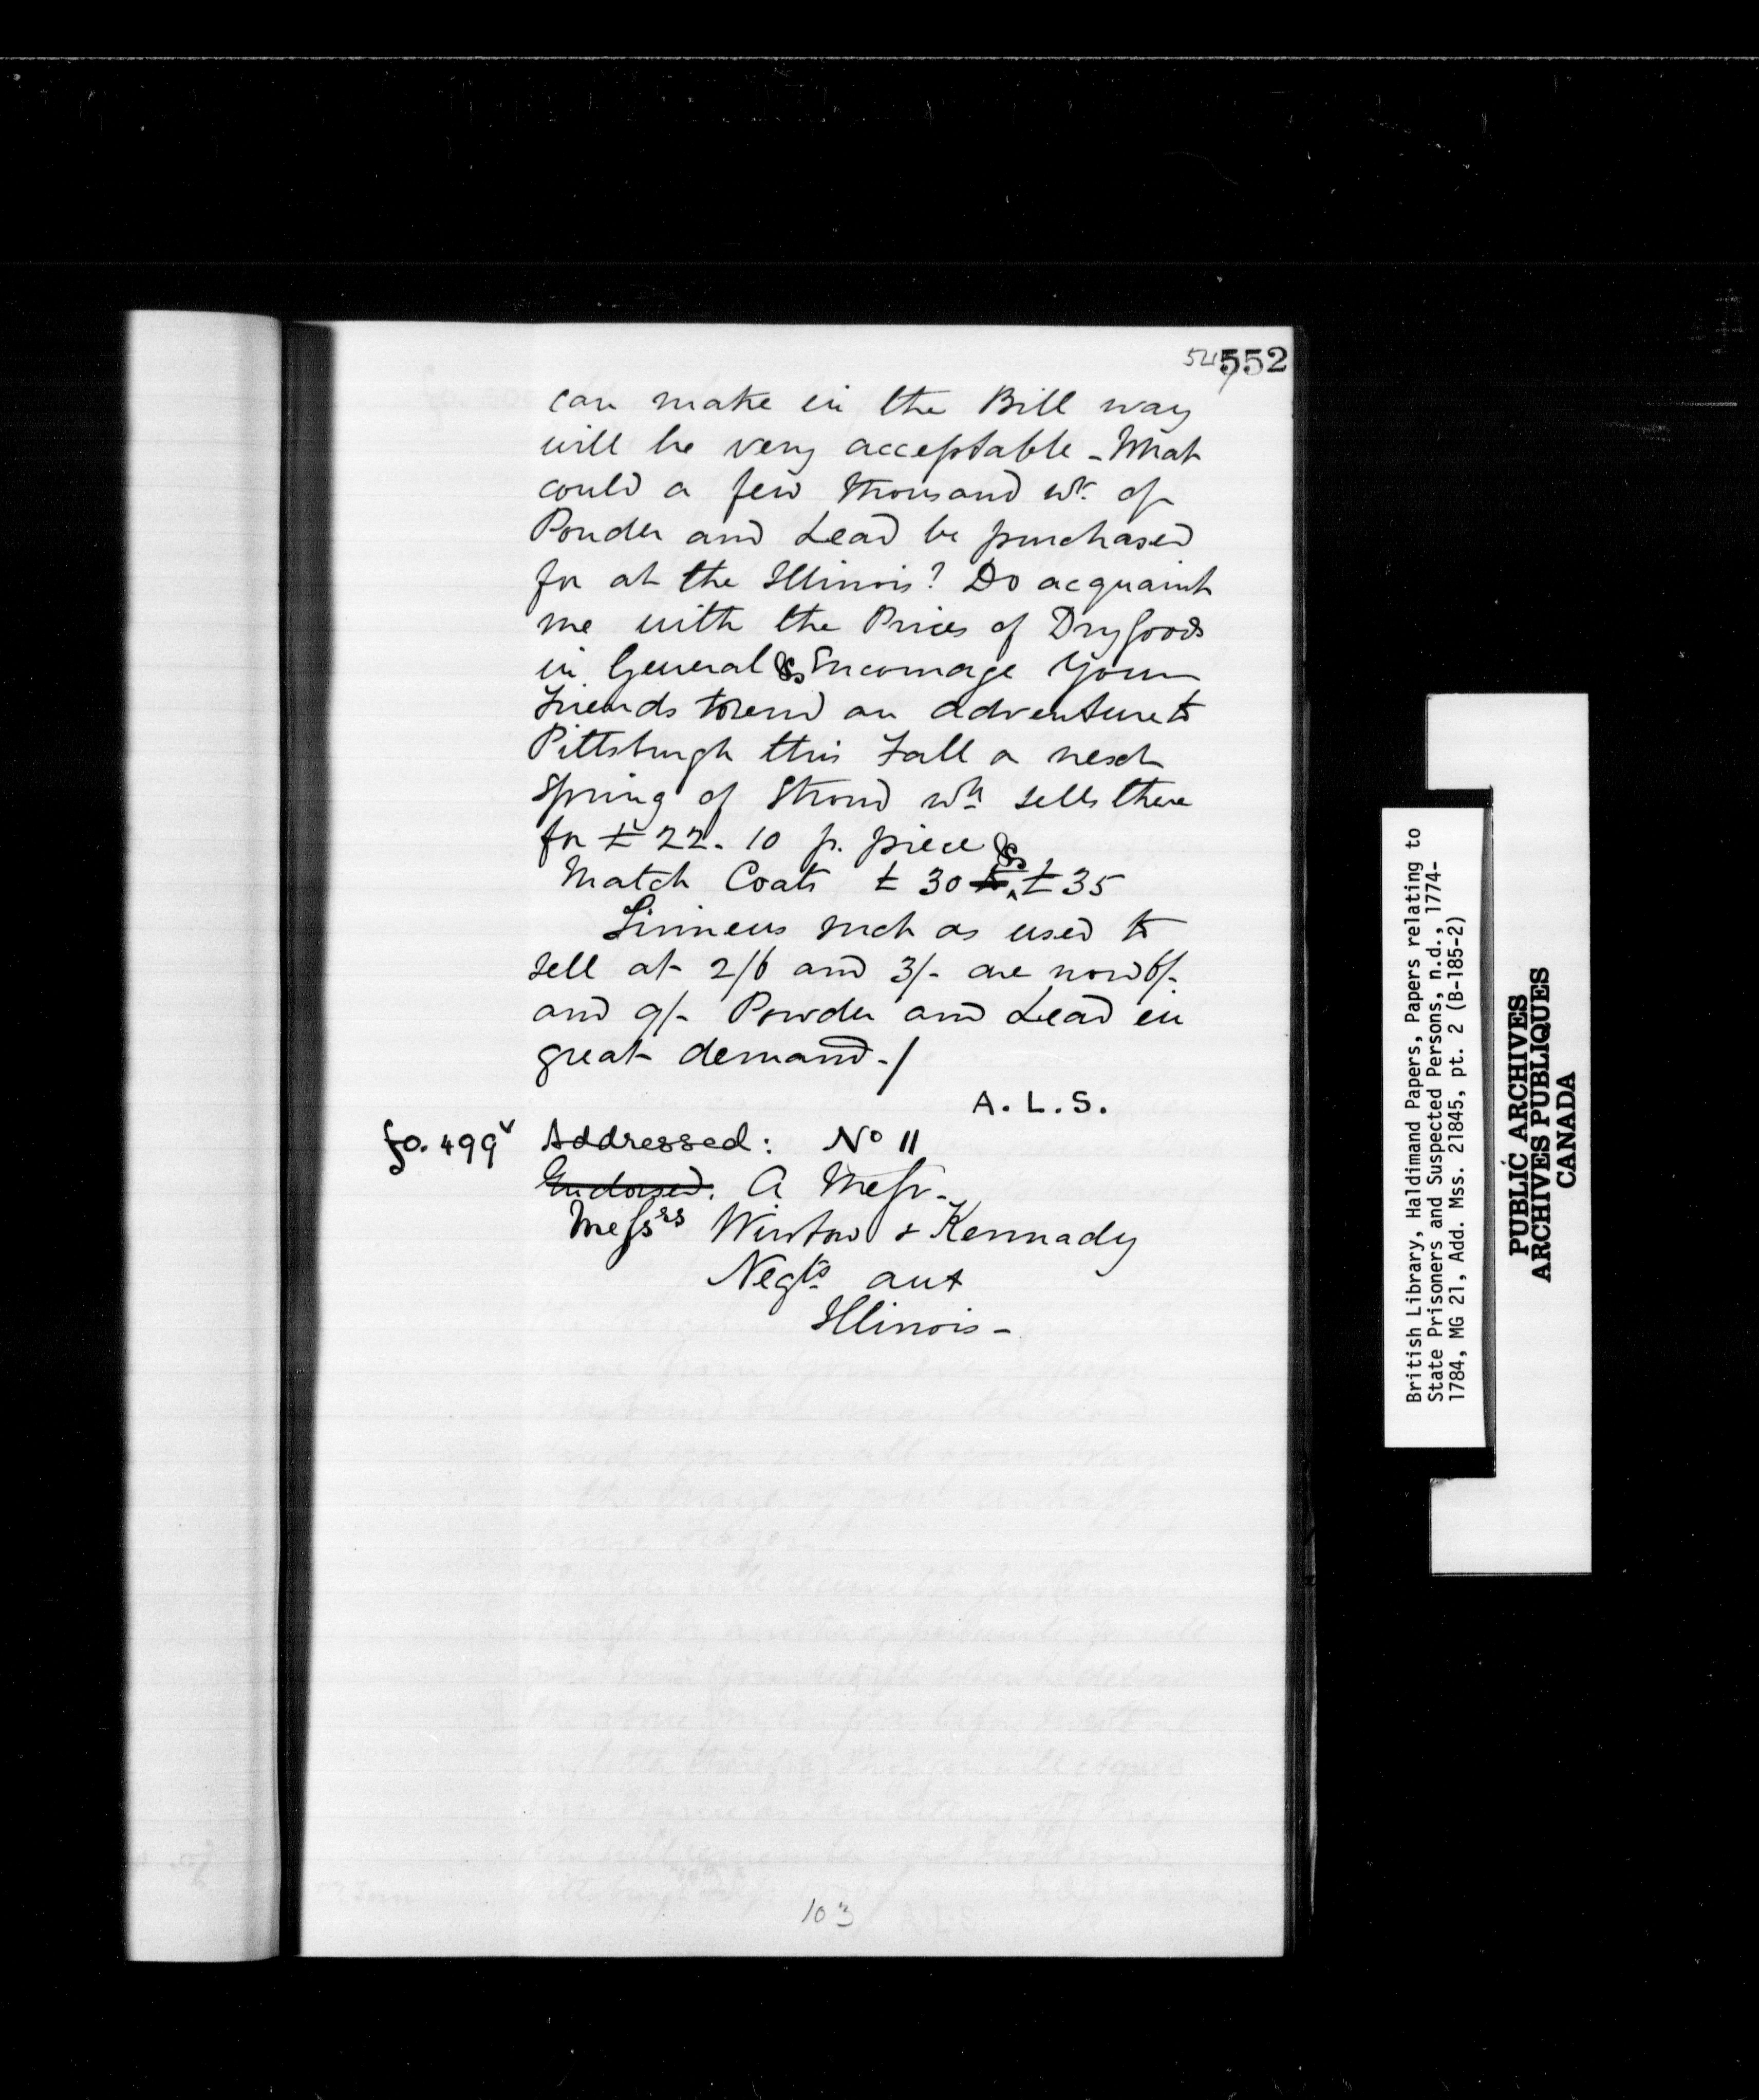 552
can make in the Bill way
will be very acceptable - What
could a few thousand wt. of
Powder and Lead be purchased
for at the Illinois? Do acquaint
me with the Prices of Dry Goods
in General & Encourage Your
Friends to send an adventure to
Pittsburgh this Fall or next
Spring of Stroud wh sells there
for £ 22. 10 p. piece &
Match Coats £ 30 & £ 35
Linnens such as used to
sell at 2/6 and 3/- are now 6/-
and 9/- Powder and Lead in
great demand -/
A. L. S.
fo. 499v Addressed: No 11
Endorsed. A Messr.
Messrs Winston & Kennady
Negts aux
Illinois -
103
British Library, Haldimand Papers, Papers relating to
State Prisoners and Suspected Persons, n.d., 1774-
1784, MG 21, Add. Mss. 21845, pt. 2 (B-185-2)
PUBLIC ARCHIVES
ARCHIVES PUBLIQUES
CANADA